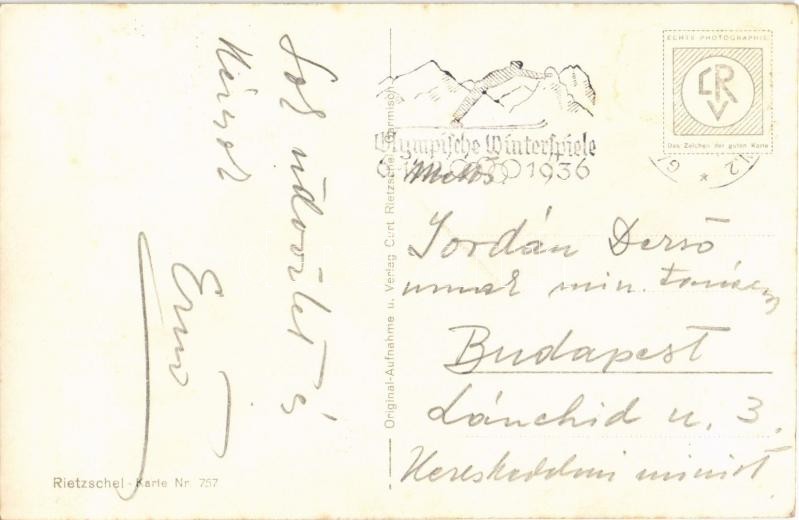 Sok üdvözlet és
Ernő
ECHTE PHOTOGRAPHIE
CRV
Das Zeichen der guten Karte
Olympische Winterspiele
1936
Jordán Dersó
min.
Budapest
Lánchid u. 3.
Kereskedelmi minist.
Original-Aufnahme u. Verlag Curt Rietzschel, Garmisch
Rietzschel-Karte Nr. 757